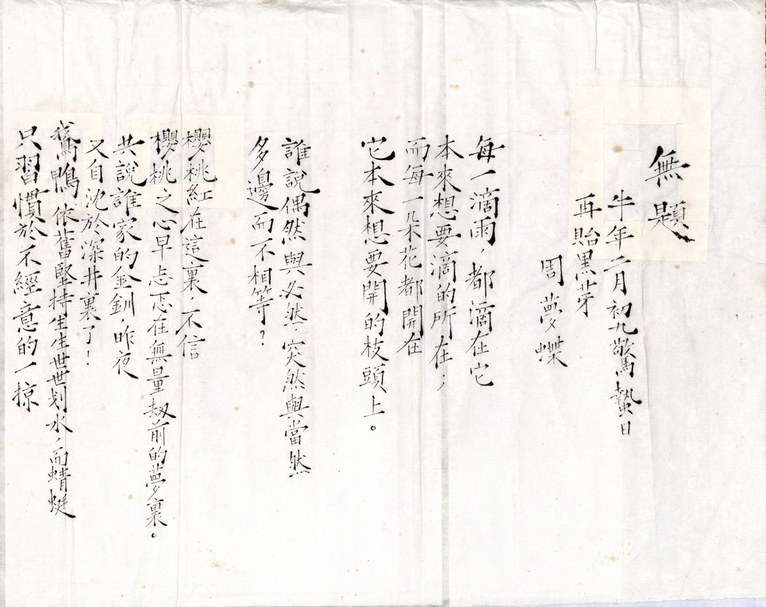 無題
牛年二月初九驚蟄日
再貽黑芽
周夢蝶
每一滴雨，都滴在它
本來想要滴的所在，
而每一朵花都開在
它本來想要開的枝頭上。
誰說偶然與必然，突然與當然
多邊而不相等？
櫻桃紅在這裏，不信
櫻桃之心早忐忑在無量劫前的夢裏。
共說誰家的金釧，昨夜
又自沈於深井裏了！
鵞鴨依舊堅持生生世世划水，而蜻蜓
只習慣於不經意的一掠